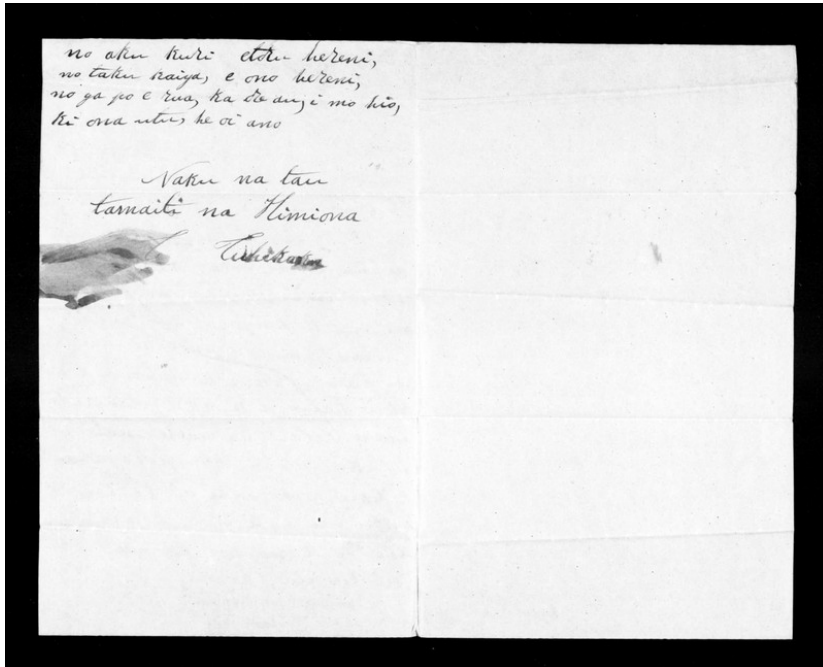 no aku kuri etoru hereni,
no taku kaiga, e ono hereni,
no ga po e rua, ka ore au, i mo hio,
ki ona utu, he oi ano
Naku na tau
tamaiti na Himiona